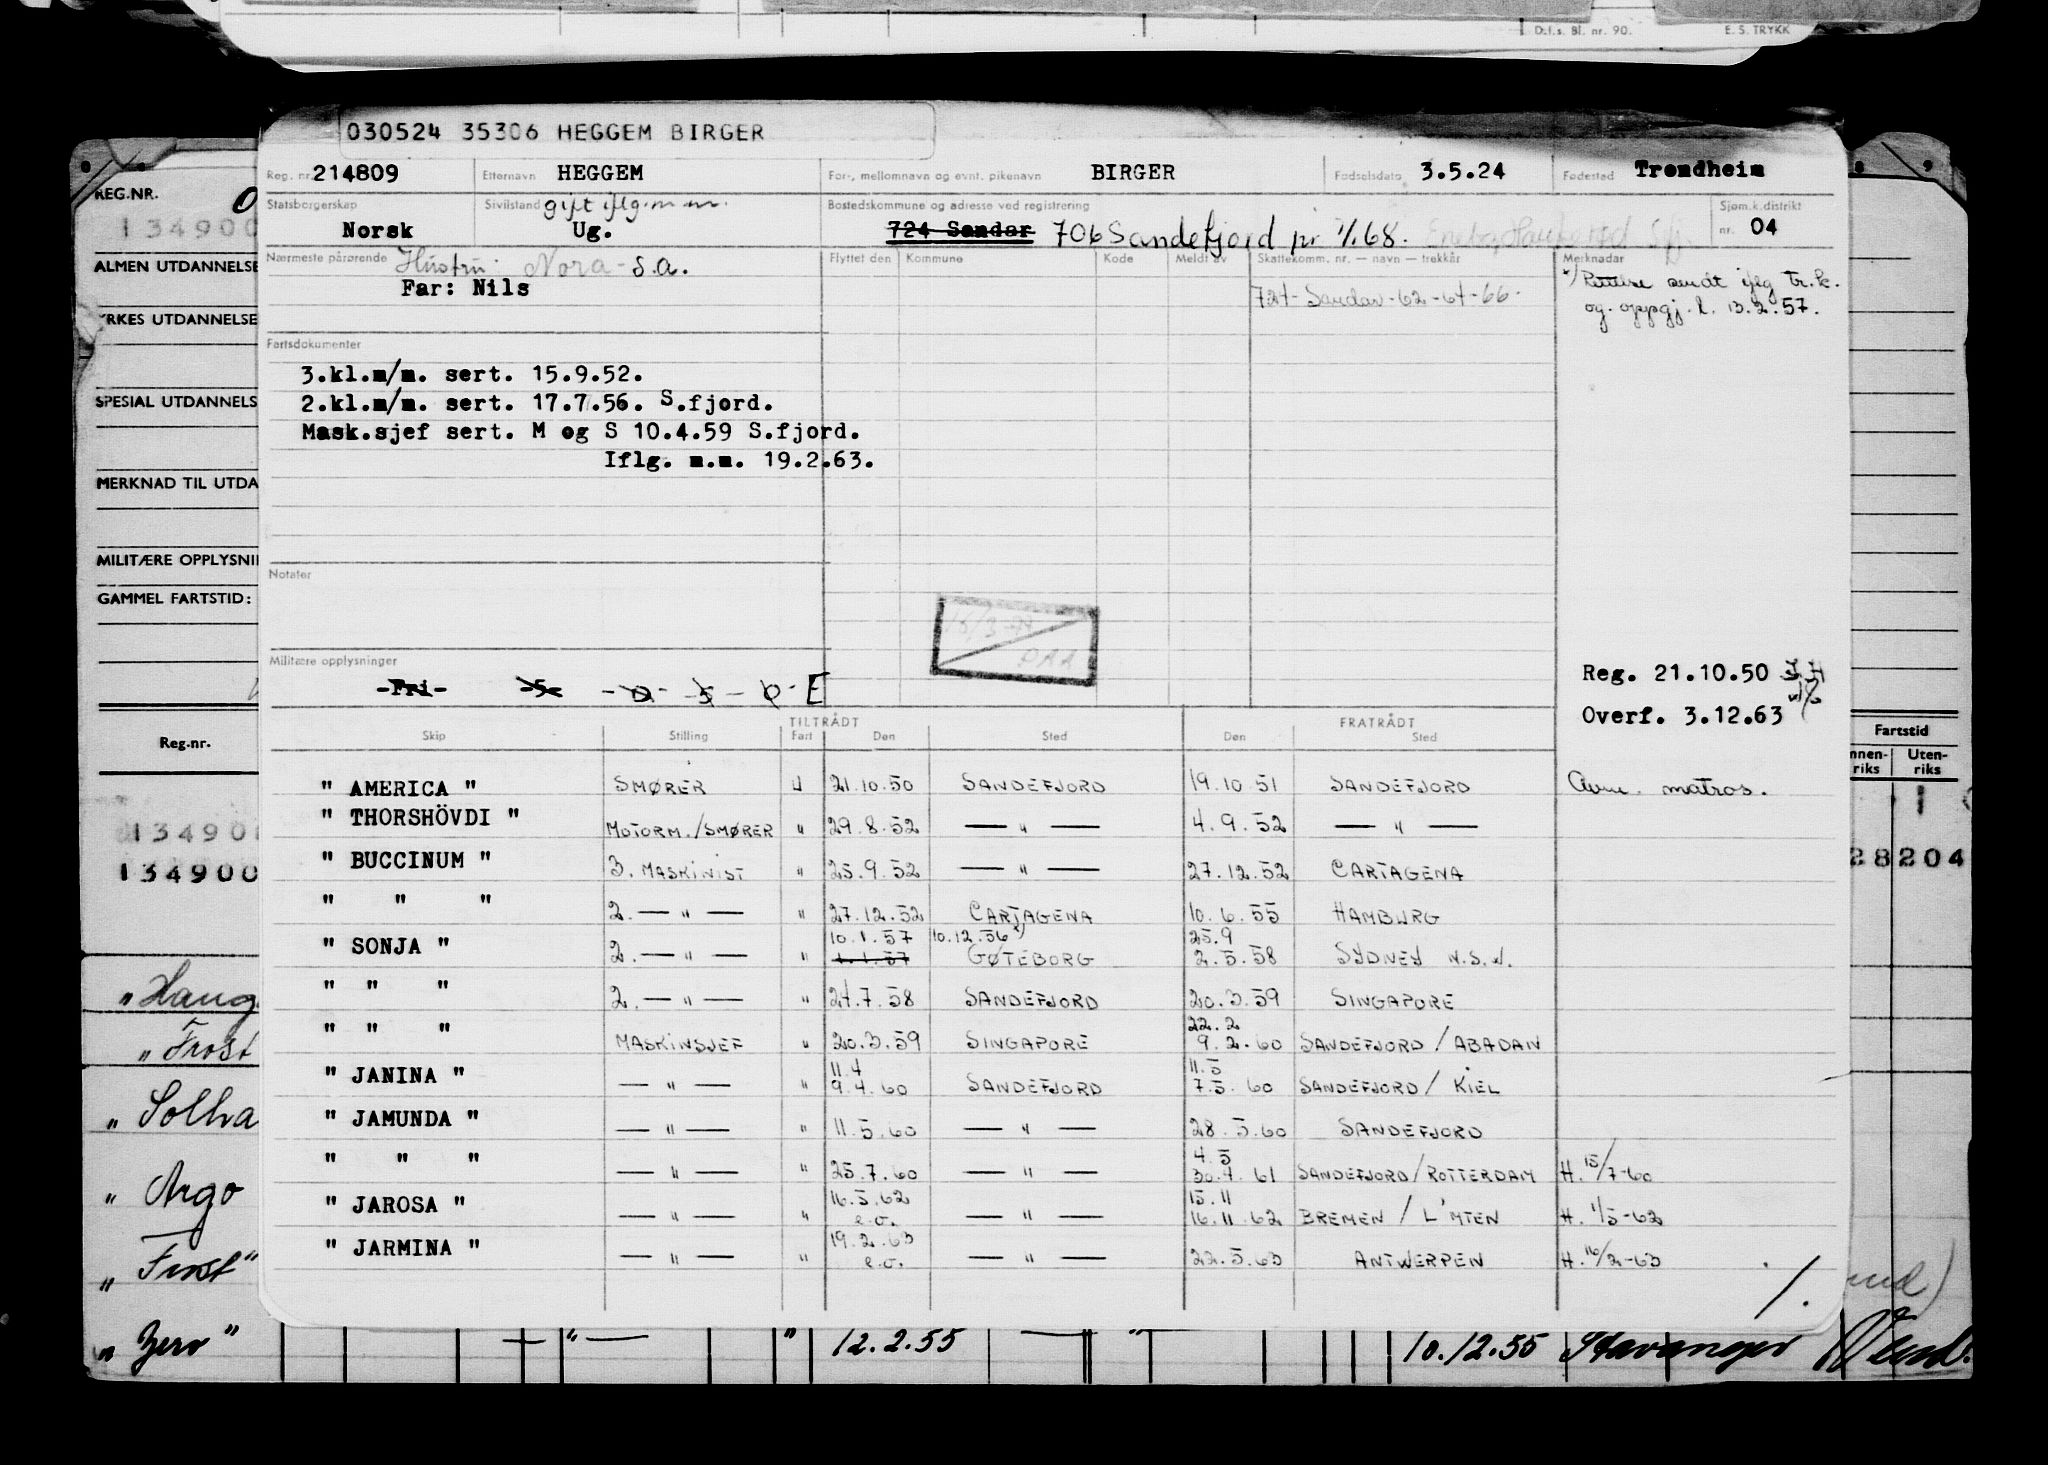 D.f.s. Bl. nr. 90. E. S. TRYKK
030524 35306 HEGGEM BIRGER
Reg. nr. 214809 Etternavn HEGGEM For-, mellomnavn og evnt. pikenavn BIRGER Fødselsdato 3.5.24 Fødested Trondheim
Statsborgerskap Sivilstand gift iflg. m.m. Bostedskommune og adresse ved registrering Sjøm.k.distrikt
Norsk Ug. 724 Sandar 706 Sandefjord pr 1/1.68. nr. 04
Nærmeste pårørende Hustru: Nora - s.a. Flyttet den Kommune Kode Meldt av Skattekomm. nr. — navn — trekkår Merknader
Far: Nils 724 - Sandar - 62 - 64 - 66 -
x) Rettelse sendt iflg Tr.k.
og. oppgj. l. 13.2.57.
Fartsdokumenter
3.kl.m/m. sert. 15.9.52.
2.kl.m/m. sert. 17.7.56. S.fjord.
Mask.sjef sert. M og S 10.4.59 S.fjord.
Iflg. m.m. 19.2.63.
Notater
DAA
Militære opplysninger
-Fri- -S- -O- -S- -O- E
Reg. 21.10.50
Overf. 3.12.63
TILTRÅDT FRATRÅDT
Skip Stilling Fart Den Sted Den Sted
" AMERICA " SMØRER U 21.10.50 SANDEFJORD 19.10.51 SANDEFJORD matros.
" THORSHÖVDI " MOTORM./SMØRER " 29.8.52 — " — 4.9.52 — " —
" BUCCINUM " 3. MASKINIST " 25.9.52 — " — 27.12.52 CARTAGENA
" " " 2. — " — " 27.12.52 CARTAGENA 10.6.55 HAMBURG
10.1.57 10.12.56 x) 25.9
" SONJA " 2. — " — " 1.1.57 GØTEBORG 2.5.58 SYDNEY N.S.W.
" " " 2. — " — " 24.7.58 SANDEFJORD 20.3.59 SINGAPORE
22.2
" " " MASKINSJEF " 20.3.59 SINGAPORE 9.2.60 SANDEFJORD / ABADAN
11.4 11.5
" JANINA " — " — " 9.4.60 SANDEFJORD 7.5.60 SANDEFJORD / KIEL
" JAMUNDA " — " — " 11.5.60 — " — 28.5.60 SANDEFJORD
4.5
" " " — " — " 25.7.60 — " — 30.4.61 SANDEFJORD / ROTTERDAM H. 15/7-60
16.5.62 15.11
" JAROSA " — " — " e.o. — " — 16.11.62 BREMEN / L'MTEN H. 1/5-62
19.2.63
" JARMINA " — " — " e.o. — " — 22.5.63 ANTWERPEN H. 16/2-63
REG.NR.
134900
ALMEN UTDANNELSE
YRKES UTDANNELSE
SPESIAL UTDANNELS
MERKNAD TIL UTDA
MILITÆRE OPPLYSNI
GAMMEL FARTSTID:
Reg.nr. Fartstid
nnen-riks Uten-riks
134901
134900 28204
" Haug
" Frost
" Solha
" Argo
" Frost"
" Zero " — " — " 12.2.55 — " — 10.12.55 Stavanger